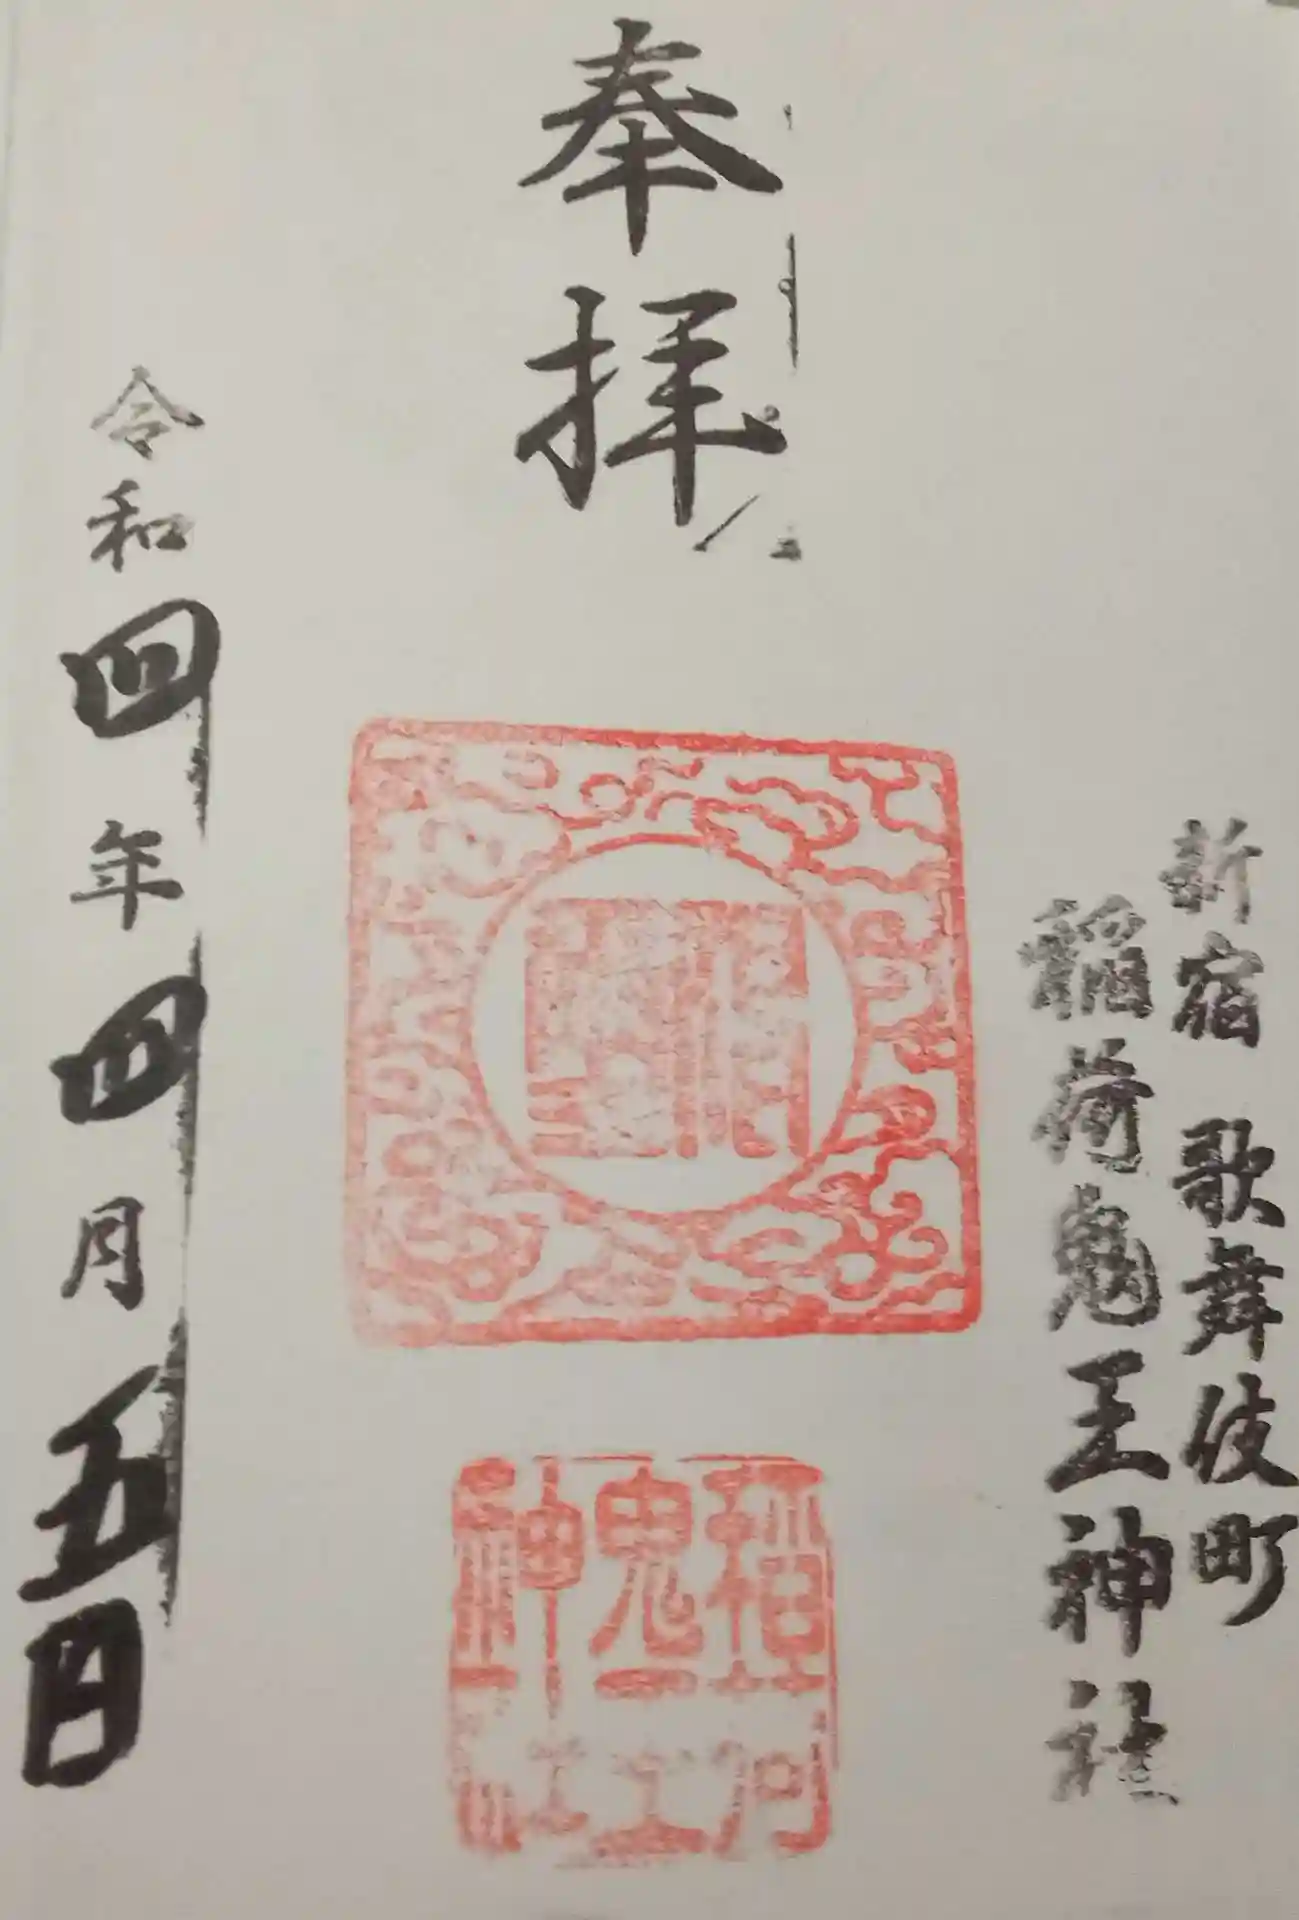 奉拝
新宿 歌舞伎町
稲荷鬼王神社
稲荷
鬼王
神社
令和四年四月五日